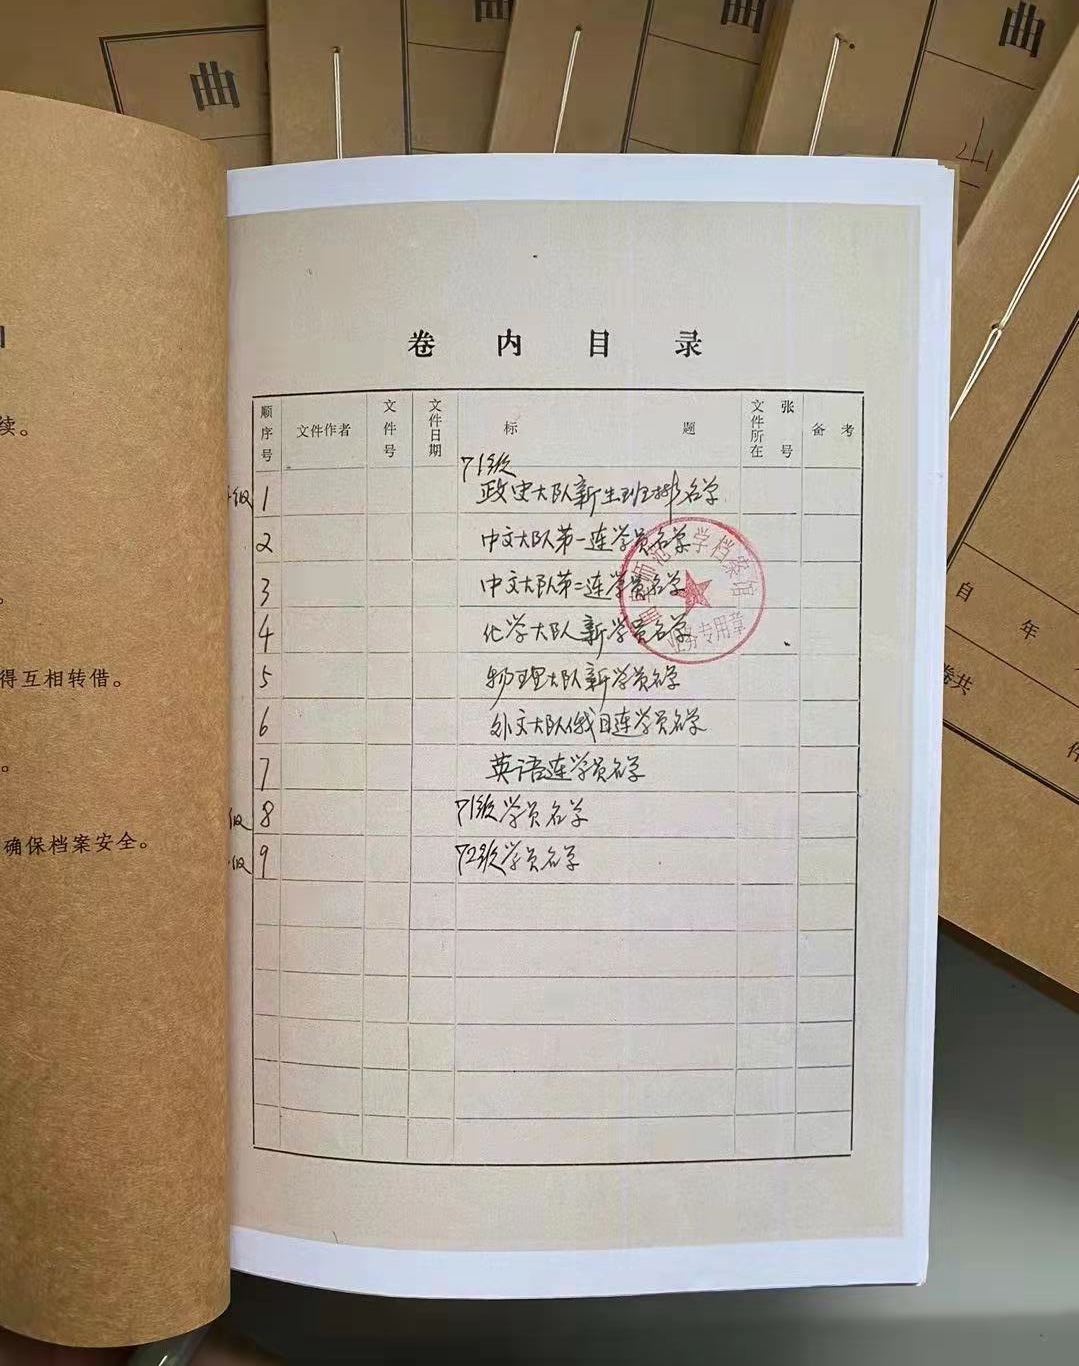 曲
曲
曲
续。
得互相转借。
确保档案安全。
卷内目录
顺序号
文件作者
文件号
文件日期
标题
文件所在张号
备考
71级
1 政史大队新生班排名单
2 中文大队第一连学员名单
3 中文大队第二连学员名单
4 化学大队新学员名单
5 物理大队新学员名单
6 外文大队俄日连学员名单
7 英语连学员名单
级 8 71级学员名单
级 9 72级学员名单
师范学档案馆
专用章
自
年
卷共